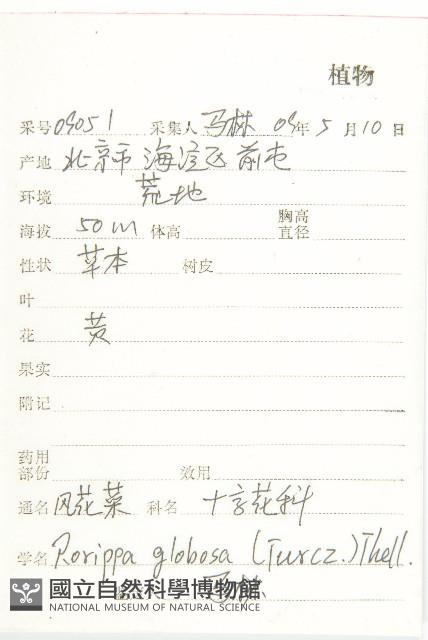 植物
采号 09051 采集人 马林 09年 5 月 10 日
产地 北京市 海淀区 前屯
环境 荒地
海拔 50m 体高 胸高直径
性状 草本 树皮
叶
花 黄
果实
附记
药用部份 效用
通名 风花菜 科名 十字花科
学名 Rorippa globosa (Turcz.) Thell.
國立自然科學博物館
NATIONAL MUSEUM OF NATURAL SCIENCE